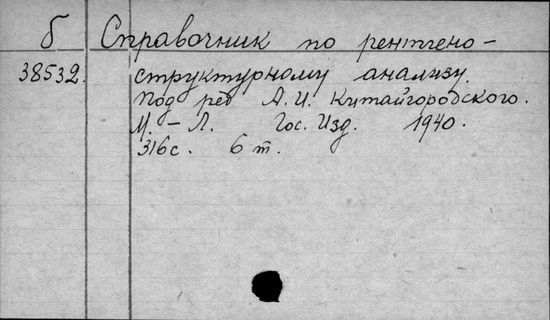 Б Справочник по рентгено-
38532. структурному анализу.
Под ред А.И. Китайгородского.
М. - Л. Гос. Изд. 1940.
316 с. 6 т.